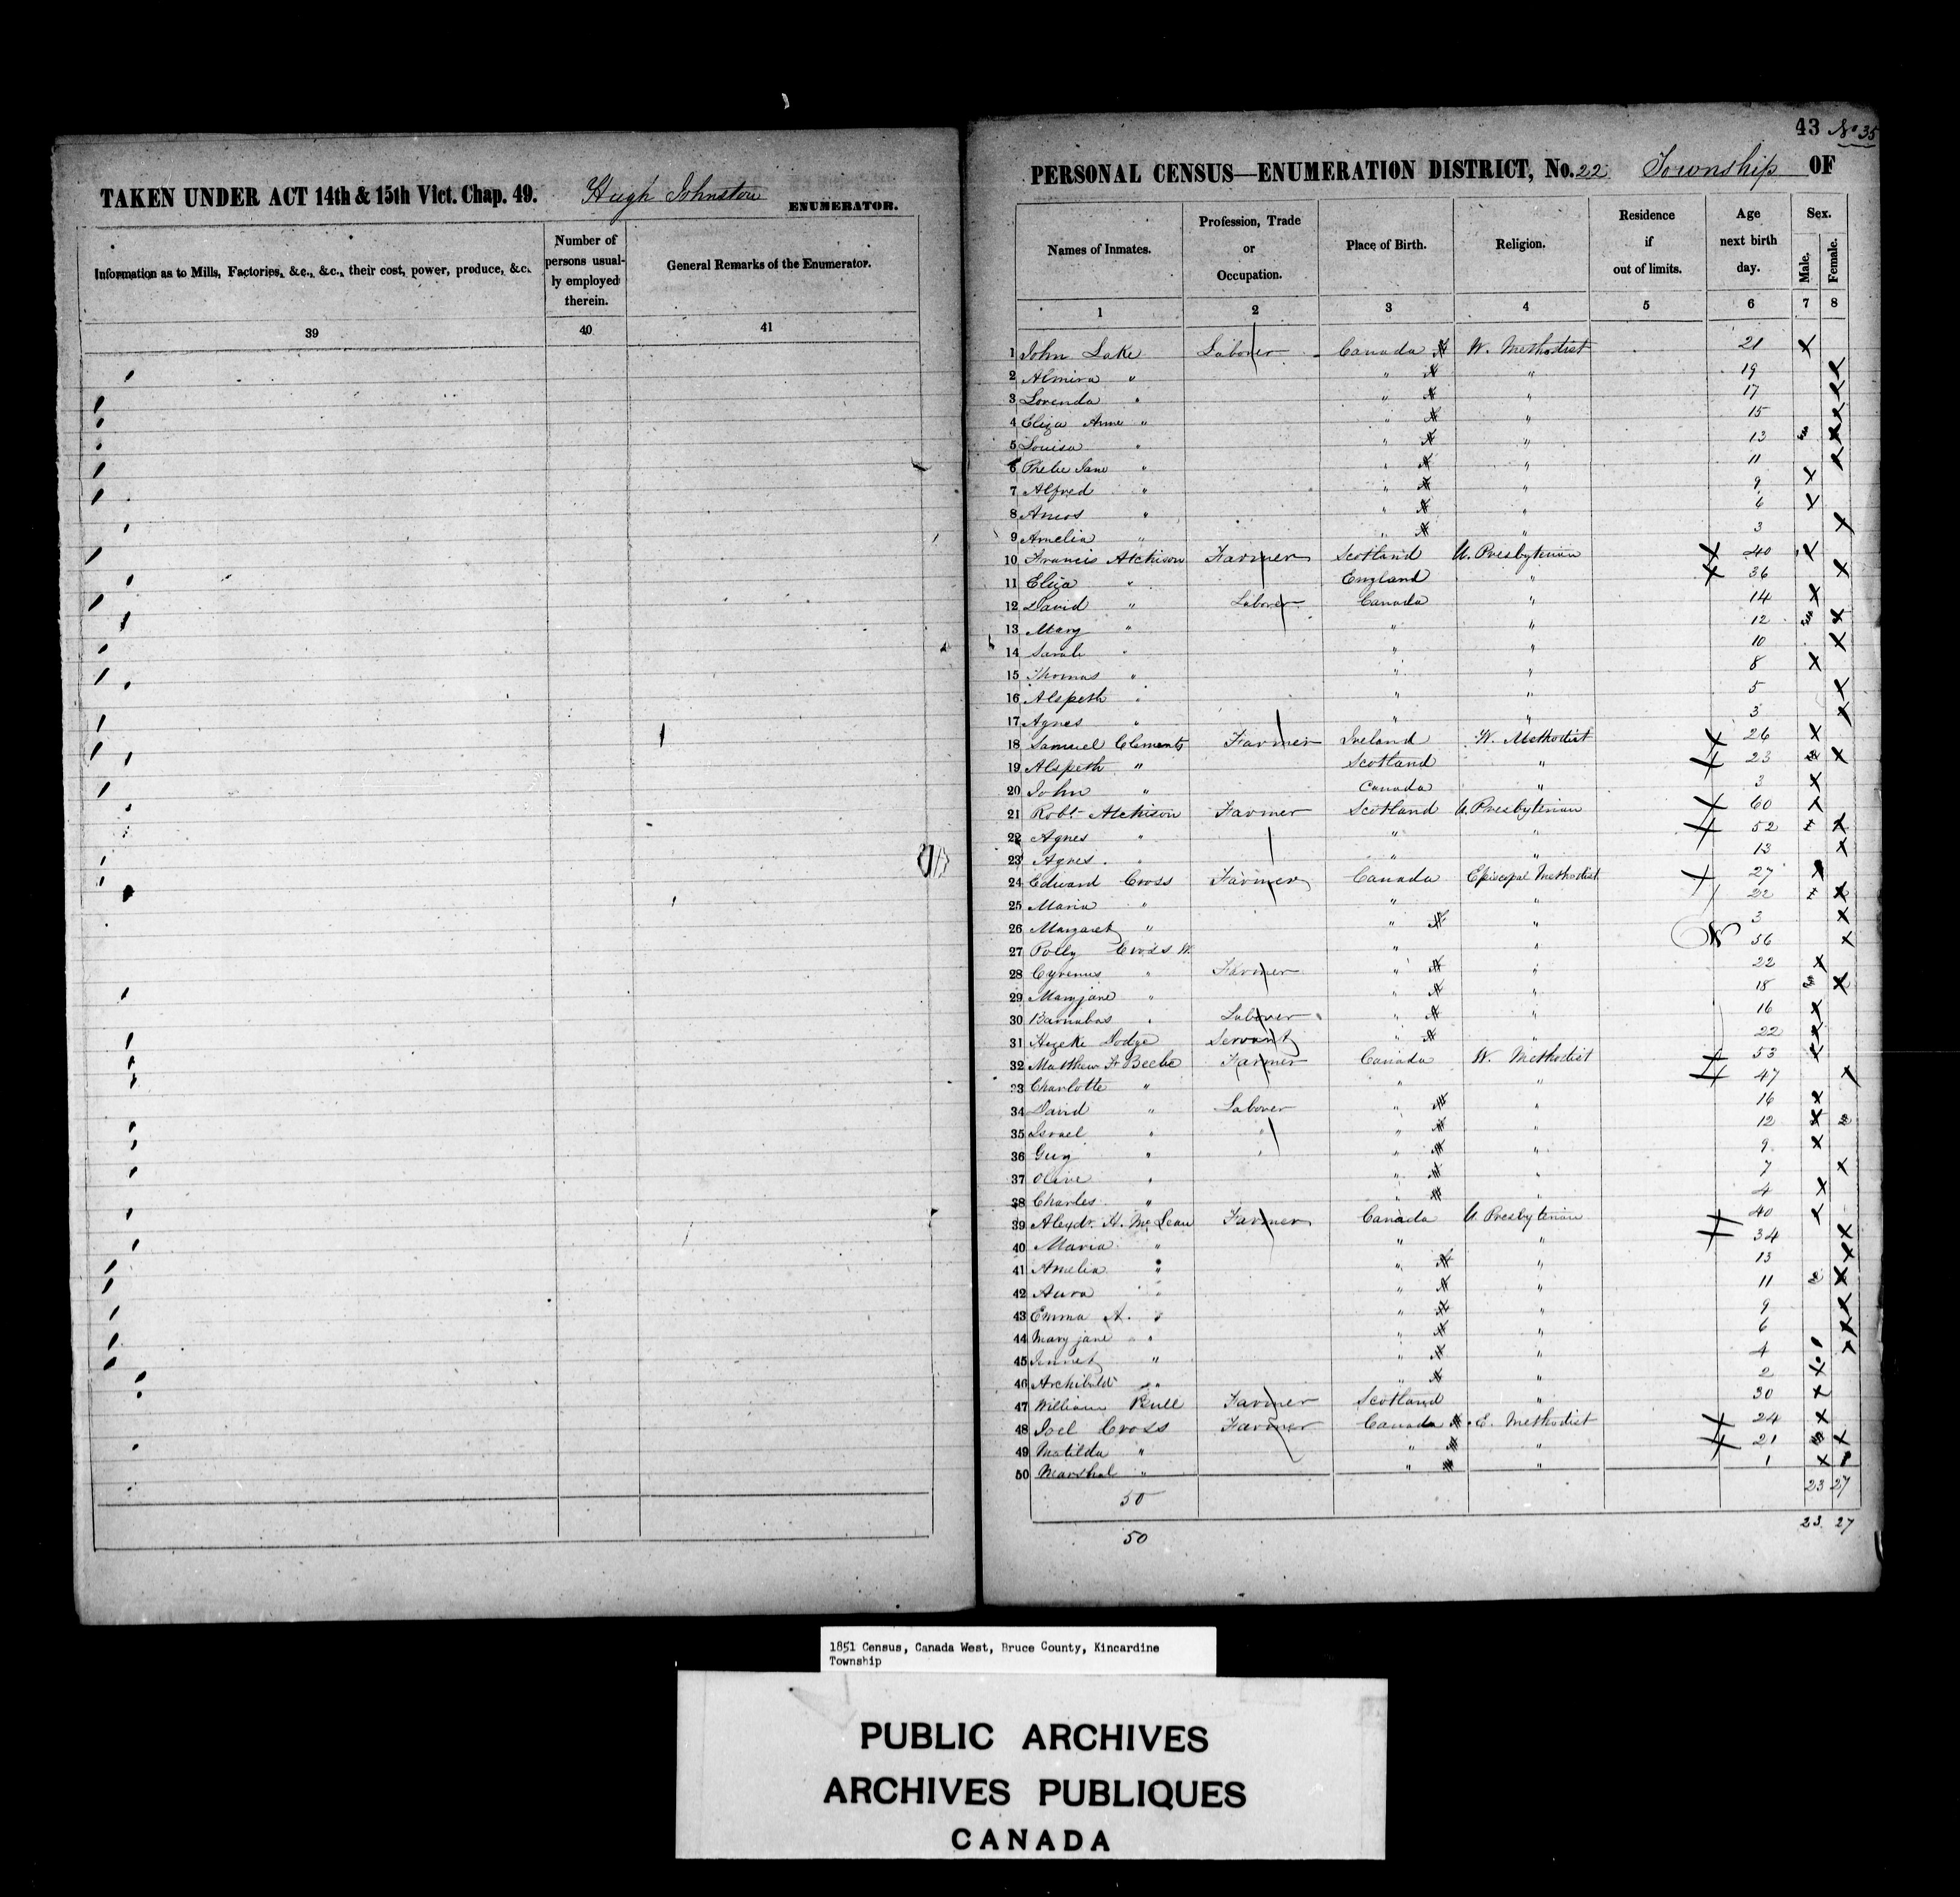 TAKEN UNDER ACT 14th & 15th Vict. Chap. 49. Hugh Johnston ENUMERATOR.
Information as to Mills, Factories, &c., &c., their cost, power, produce, &c.
Number of persons usually employed therein.
General Remarks of the Enumerator.
39 40 41
43 No 35
PERSONAL CENSUS—ENUMERATION DISTRICT, No. 22 Township OF
Names of Inmates. Profession, Trade or Occupation. Place of Birth. Religion. Residence if out of limits. Age next birth day. Sex. Male. Female.
1 2 3 4 5 6 7 8
1 John Lake Laborer Canada W. Methodist 21 x
2 Almira " " " 19 x
3 Lorenda " " " 17 x
4 Eliza Anne " " " 15 x
5 Louisa " " " 13 x
6 Phebe Jane " " " 11 x
7 Alfred " " " 9 x
8 Amos " " " 6 x
9 Amelia " " " 3 x
10 Francis Atchison Farmer Scotland U. Presbyterian 40 x
11 Eliza " England " 36 x
12 David " Laborer Canada " 14 x
13 Mary " " " 12 x
14 Sarah " " " 10 x
15 Thomas " " " 8 x
16 Alspeth " " " 5 x
17 Agnes " " " 3 x
18 Samuel Clements Farmer Ireland W. Methodist 26 x
19 Alspeth " Scotland " 23 x
20 John " Canada " 3 x
21 Robt Atchison Farmer Scotland U. Presbyterian 60 x
22 Agnes " " " 52 x
23 Agnes " " " 13 x
24 Edward Cross Farmer Canada Episcopal Methodist 27 x
25 Maria " " " 22 x
26 Margaret " " " 3 x
27 Polly Cross W. " " 56 x
28 Cyrenus " Farmer " " 22 x
29 Maryjane " " " 18 x
30 Barnabas " Laborer " " 16 x
31 Hezeke Dodge Servant " " 22 x
32 Matthew Beebe Farmer Canada W. Methodist 53 x
33 Charlotte " " " 47 x
34 David " Laborer " " 16 x
35 Israel " " " " 12 x
36 Guy " " " " 9 x
37 Olive " " " 7 x
38 Charles " " " 4 x
39 Alexdr. H. McLean Farmer Canada U. Presbyterian 40 x
40 Maria " " " 34 x
41 Amelia " " " 13 x
42 Aura " " " 11 x
43 Emma A. " " " 9 x
44 Mary jane " " " 6 x
45 Jennet " " " 4 x
46 Archibald " " " 2 x
47 William Bull Farmer Scotland " 30 x
48 Joel Cross Farmer Canada E. Methodist 24 x
49 Matilda " " " 21 x
50 Marshal " " " 1 x
50 23 27
50 23 27
1851 Census, Canada West, Bruce County, Kincardine
Township
PUBLIC ARCHIVES
ARCHIVES PUBLIQUES
CANADA